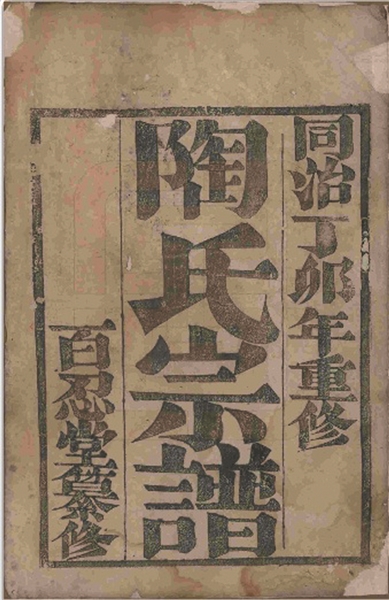 同治丁卯年重修
陶氏宗譜
百忍堂纂修